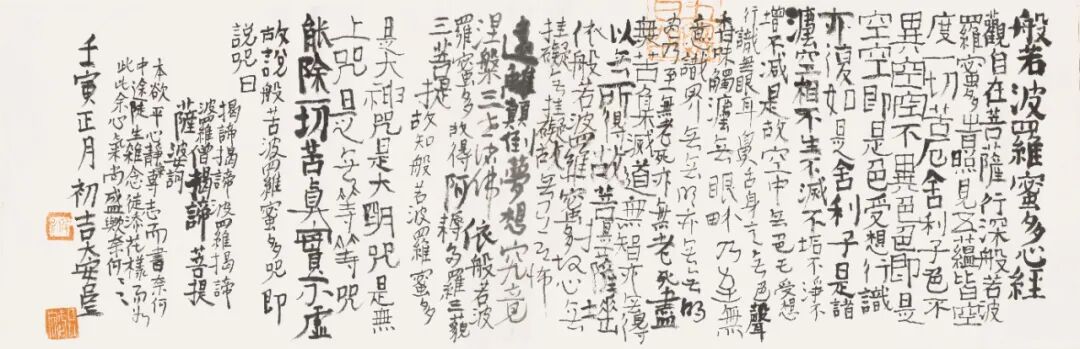 般若波羅蜜多心經
觀自在菩薩行深般若波
羅蜜多時照見五蘊皆空
度一切苦厄舍利子色不
異空空不異色色即是
空空即是色受想行識
亦復如是舍利子是諸
法空相不生不滅不垢不淨不
增不減是故空中无色无受想
行識無眼耳鼻舌身意无色聲
香味觸法无眼界乃至無
意識界无无明亦无无明
盡乃至無老死亦無老死盡
無苦集滅道無智亦无得
以无所得故菩提薩埵
依般若波羅蜜多故心无
挂礙无挂礙故无有恐怖
遠離顛倒夢想究竟
涅槃三世諸佛依般若波
羅蜜多故得阿耨多羅三藐
三菩提故知般若波羅蜜多
是大神咒是大明咒是無
上咒是无等等咒
能除一切苦真實不虛
故說般若波羅蜜多咒即
說咒曰
揭諦揭諦波羅揭諦
波羅僧揭諦菩提
薩婆訶
本欲平心靜氣專志而書奈何
中途陡生雜念徒添花樣而如
此余心氣尚盛歟奈何
壬寅正月初吉大安